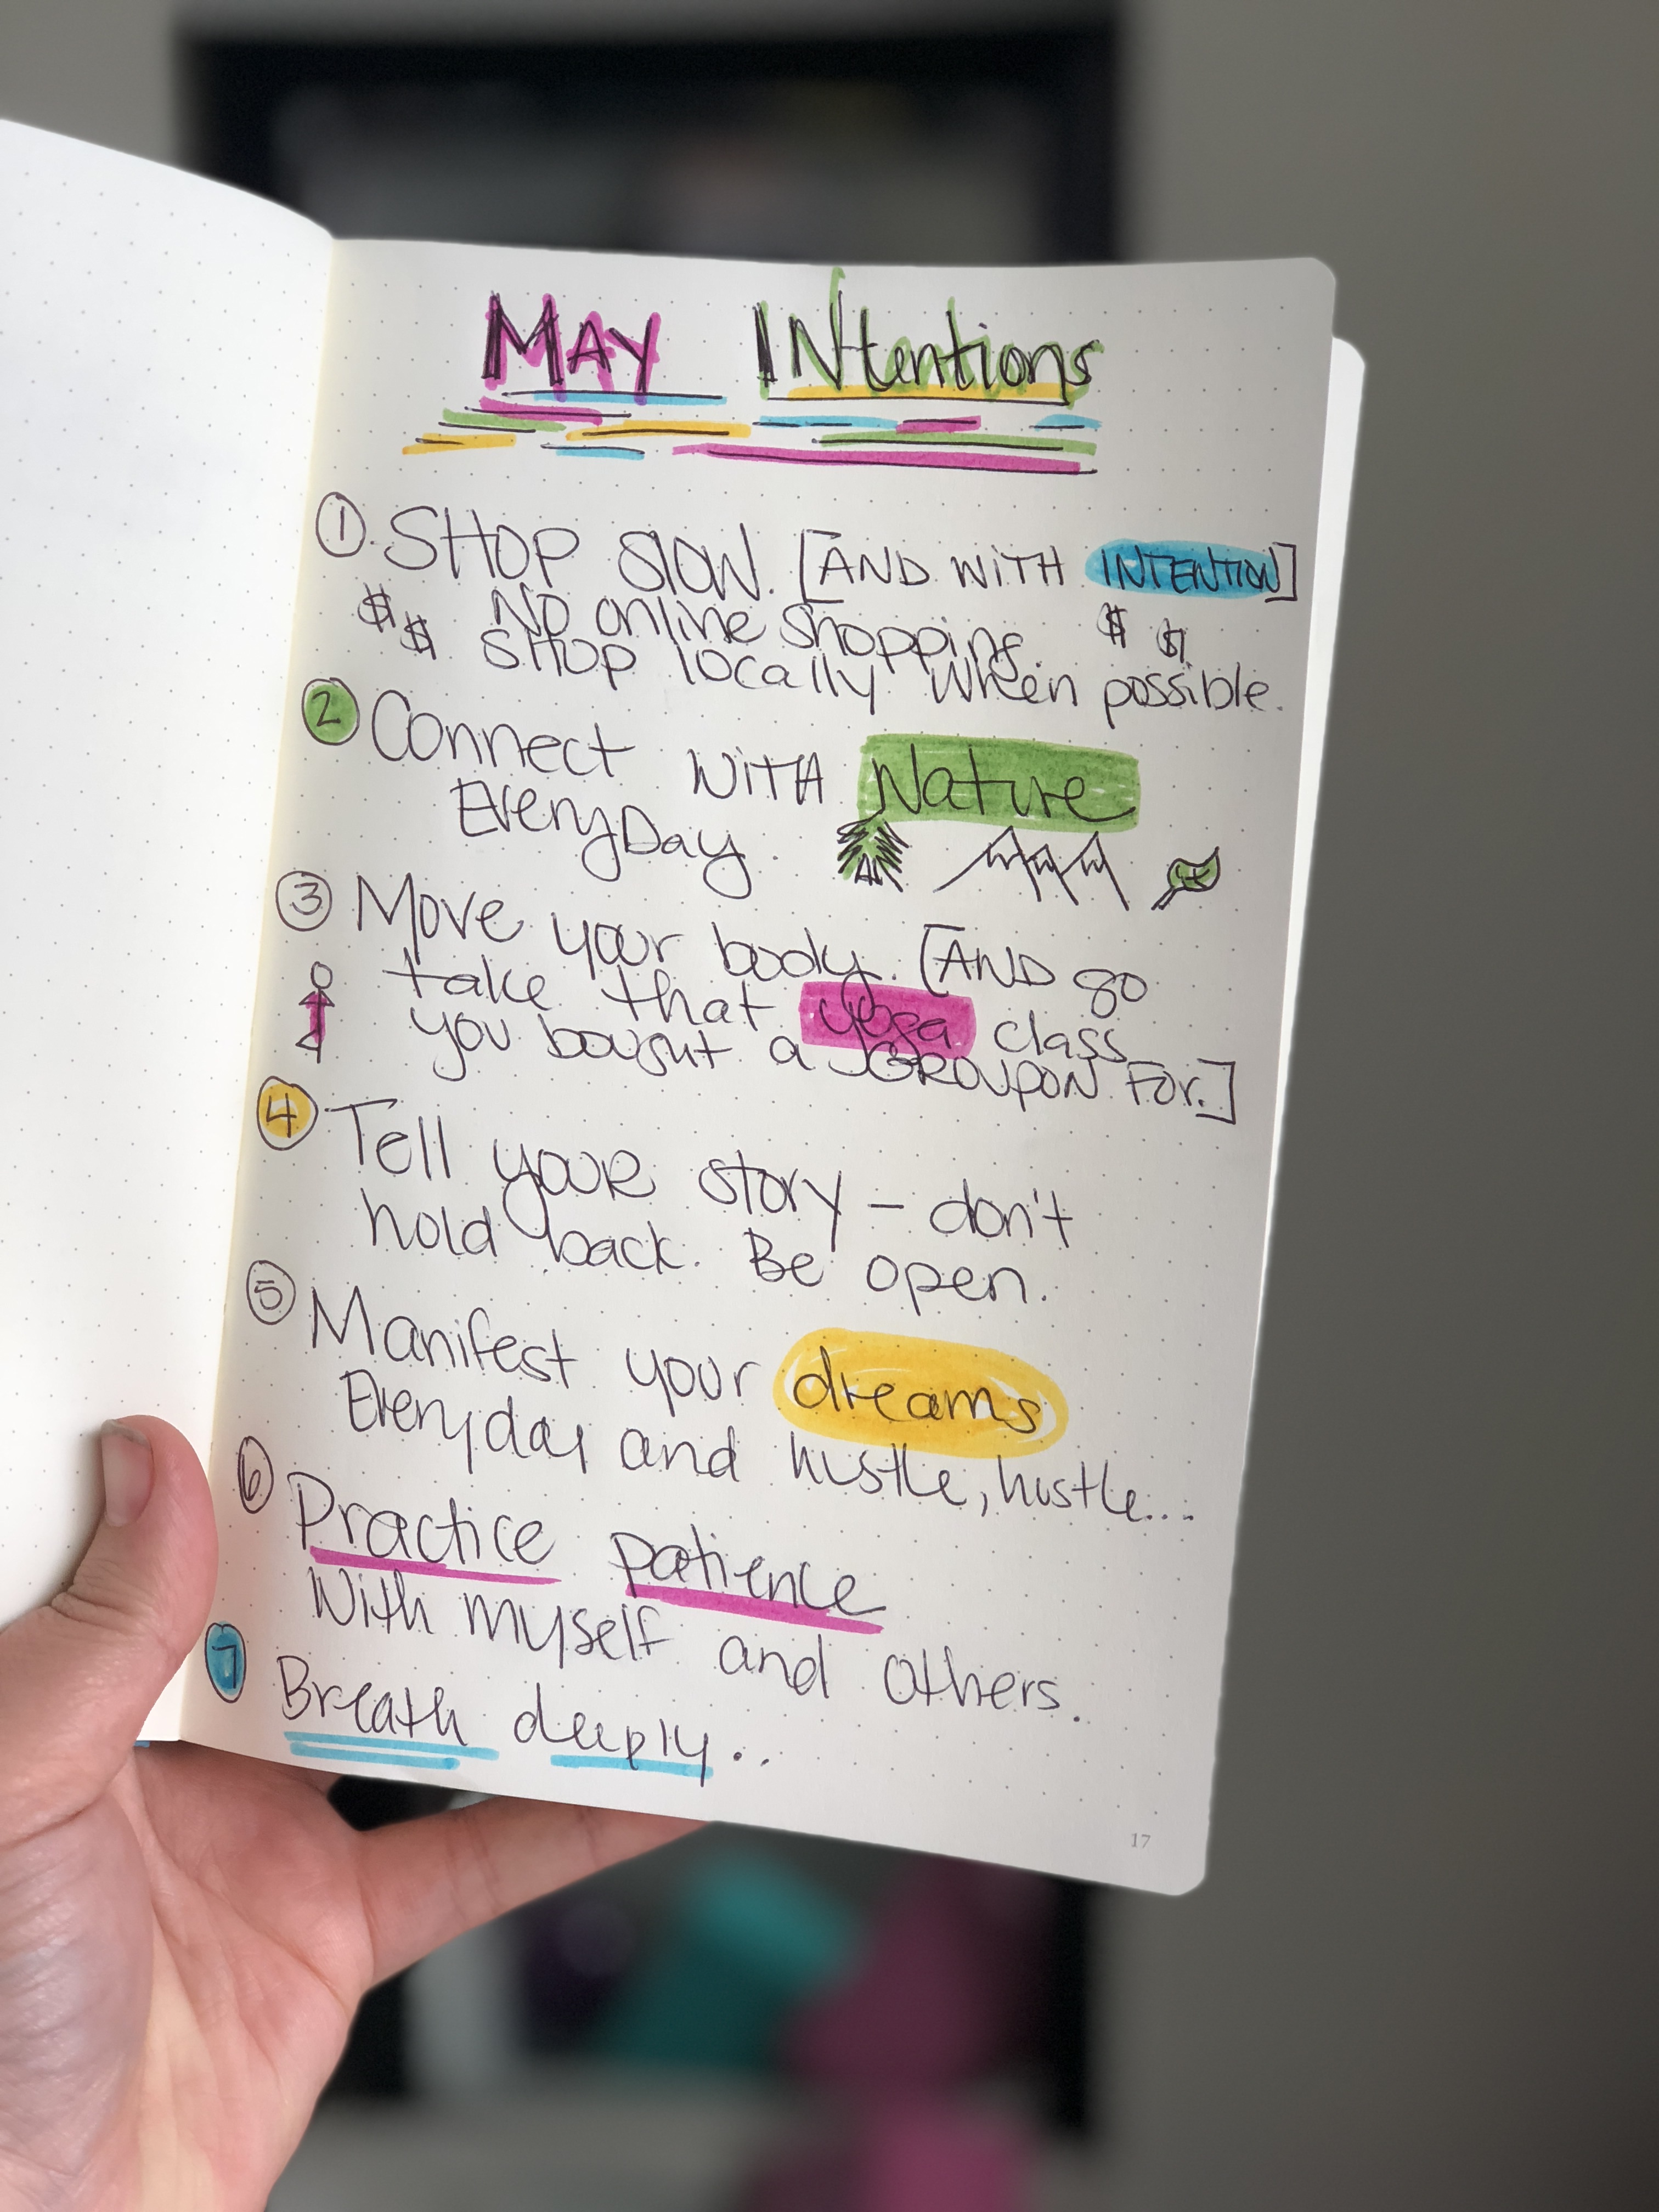 MAY INtentions
① SHOP SlOW. [AND WITH INTENTION]
$ No online shopping. $ $
$ SHOP locally When possible.
② Connect WITH Nature
EveryDay.
③ Move your body. [AND go
take that yoga class
you bought a GROUPON For.]
④ Tell youR story – don't
hold back. Be open.
⑤ Manifest your dreams
Everyday and hustle, hustle...
⑥ Practice patience
With myself and others.
⑦ Breath deeply...
17